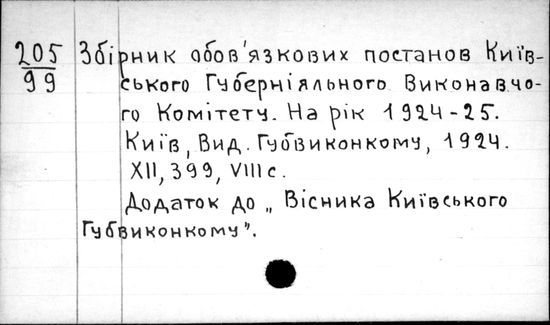 205
99
Збірник обов'язкових постанов Київ-
ського Губерніяльного Виконавчо-
го Комітету. На рік 1924-25.
Київ, Вид. Губвиконкому, 1924.
XII, 399, VIII с.
Додаток до „Вісника Київського
Губвиконкому".